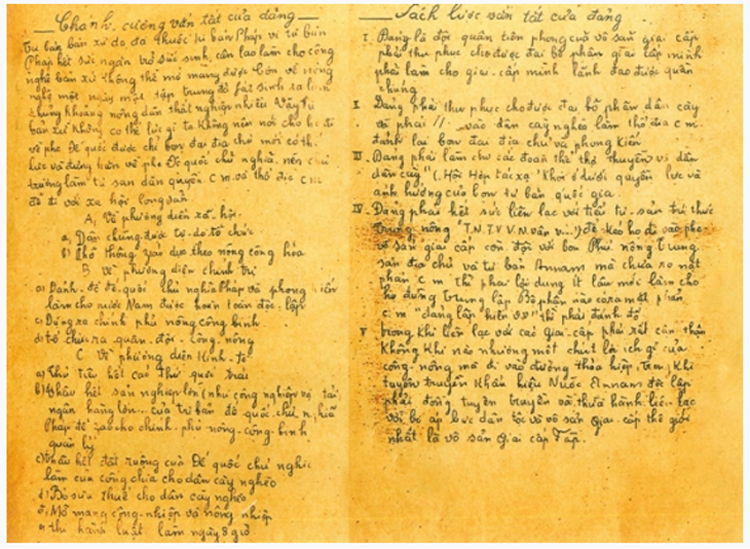 Chánh cương vắn tắt của đảng
Tư bản bản xứ đã thuộc tư bản Pháp vì tư bản
Pháp hết sức ngăn trở sức sinh sản làm cho công
nghệ bản xứ không thể mở mang được. Còn về nông
nghệ một ngày một tập trung đã phát sinh ra lắm
khủng khoảng nông dân thất nghiệp nhiều. Vậy tư
bản xứ không có thế lực gì ta không nên nói cho họ đi
về phe đế quốc được chỉ bọn đại địa chủ mới có thế
lực và đứng hẳn về phe Đế quốc chủ nghĩa, nên chủ
trương làm tư sản dân quyền c.m. và thổ địa c.m
để đi với xã hội cộng sản
A. Về phương diện xã hội
a, Dân chúng được tự do tổ chức
b) Phổ thông giáo dục theo nông công hóa
B về phương diện chính trị
a) Đánh đổ đế quốc chủ nghĩa Pháp và phong kiến
làm cho nước Nam được hoàn toàn độc lập
c) Dựng ra chính phủ nông công binh
d) tổ chức ra quân đội công nông
C Về phương diện Kinh tế
a) Thủ tiêu hết các thứ quốc trái
b) thâu hết sản nghiệp lớn (như công nghiệp vận tải
ngân hàng lớn của tư bản đế quốc chủ nghĩa
Pháp để giao cho chính phủ nông công binh
quản lý
c) thâu hết đất ruộng của Đế quốc chủ nghĩa
làm của công chia cho dân cày nghèo
d) Bỏ sưu thuế cho dân cày nghèo
Mở mang công nghiệp và nông nghiệp
thi hành luật làm ngày 8 giờ
Sách lược vắn tắt của đảng
I. Đảng là đội quân tiên phong của vô sản giai cấp
phải thu phục cho được đại bộ phận giai cấp mình
phải làm cho giai cấp mình lãnh đạo được quần
chúng
II. Đảng phải thu phục cho được đại bộ phận dân cày
và phải vào dân cày nghèo làm thổ địa c.m.
đánh lại bọn đại địa chủ và phong kiến
III. Đảng phải làm cho các đoàn thể thợ thuyền và dân
dân cày (Hội Hợp tác xã) khỏi ở dưới quyền lực và
ảnh hưởng của bọn tư bản quốc gia.
IV. Đảng phải hết sức liên lạc với tiểu tư sản trí thức
trung nông T.N. T.V để kéo họ đi vào phe
vô sản giai cấp còn đối với bọn Phú nông trung
sản địa chủ và tư bản Annam mà chưa rõ mặt
phản c.m thì phải lợi dụng ít lâu mới làm cho
họ đứng trung lập Bộ phận nào đã ra mặt phản
c.m "đảng lập hiến v.v" thì phải đánh đổ
V Trong khi liên lạc với các giai cấp phải rất cẩn thận
Không Khi nào nhường một chút lợi ích gì của
công nông mà đi vào đường thỏa hiệp, Khi
tuyên truyền Khẩu hiệu Nước Annam độc lập
phải đồng tuyên truyền và thực hành liên lạc
với bị áp bức dân tộc và vô sản giai cấp thế giới
nhất là vô sản giai cấp Pháp.